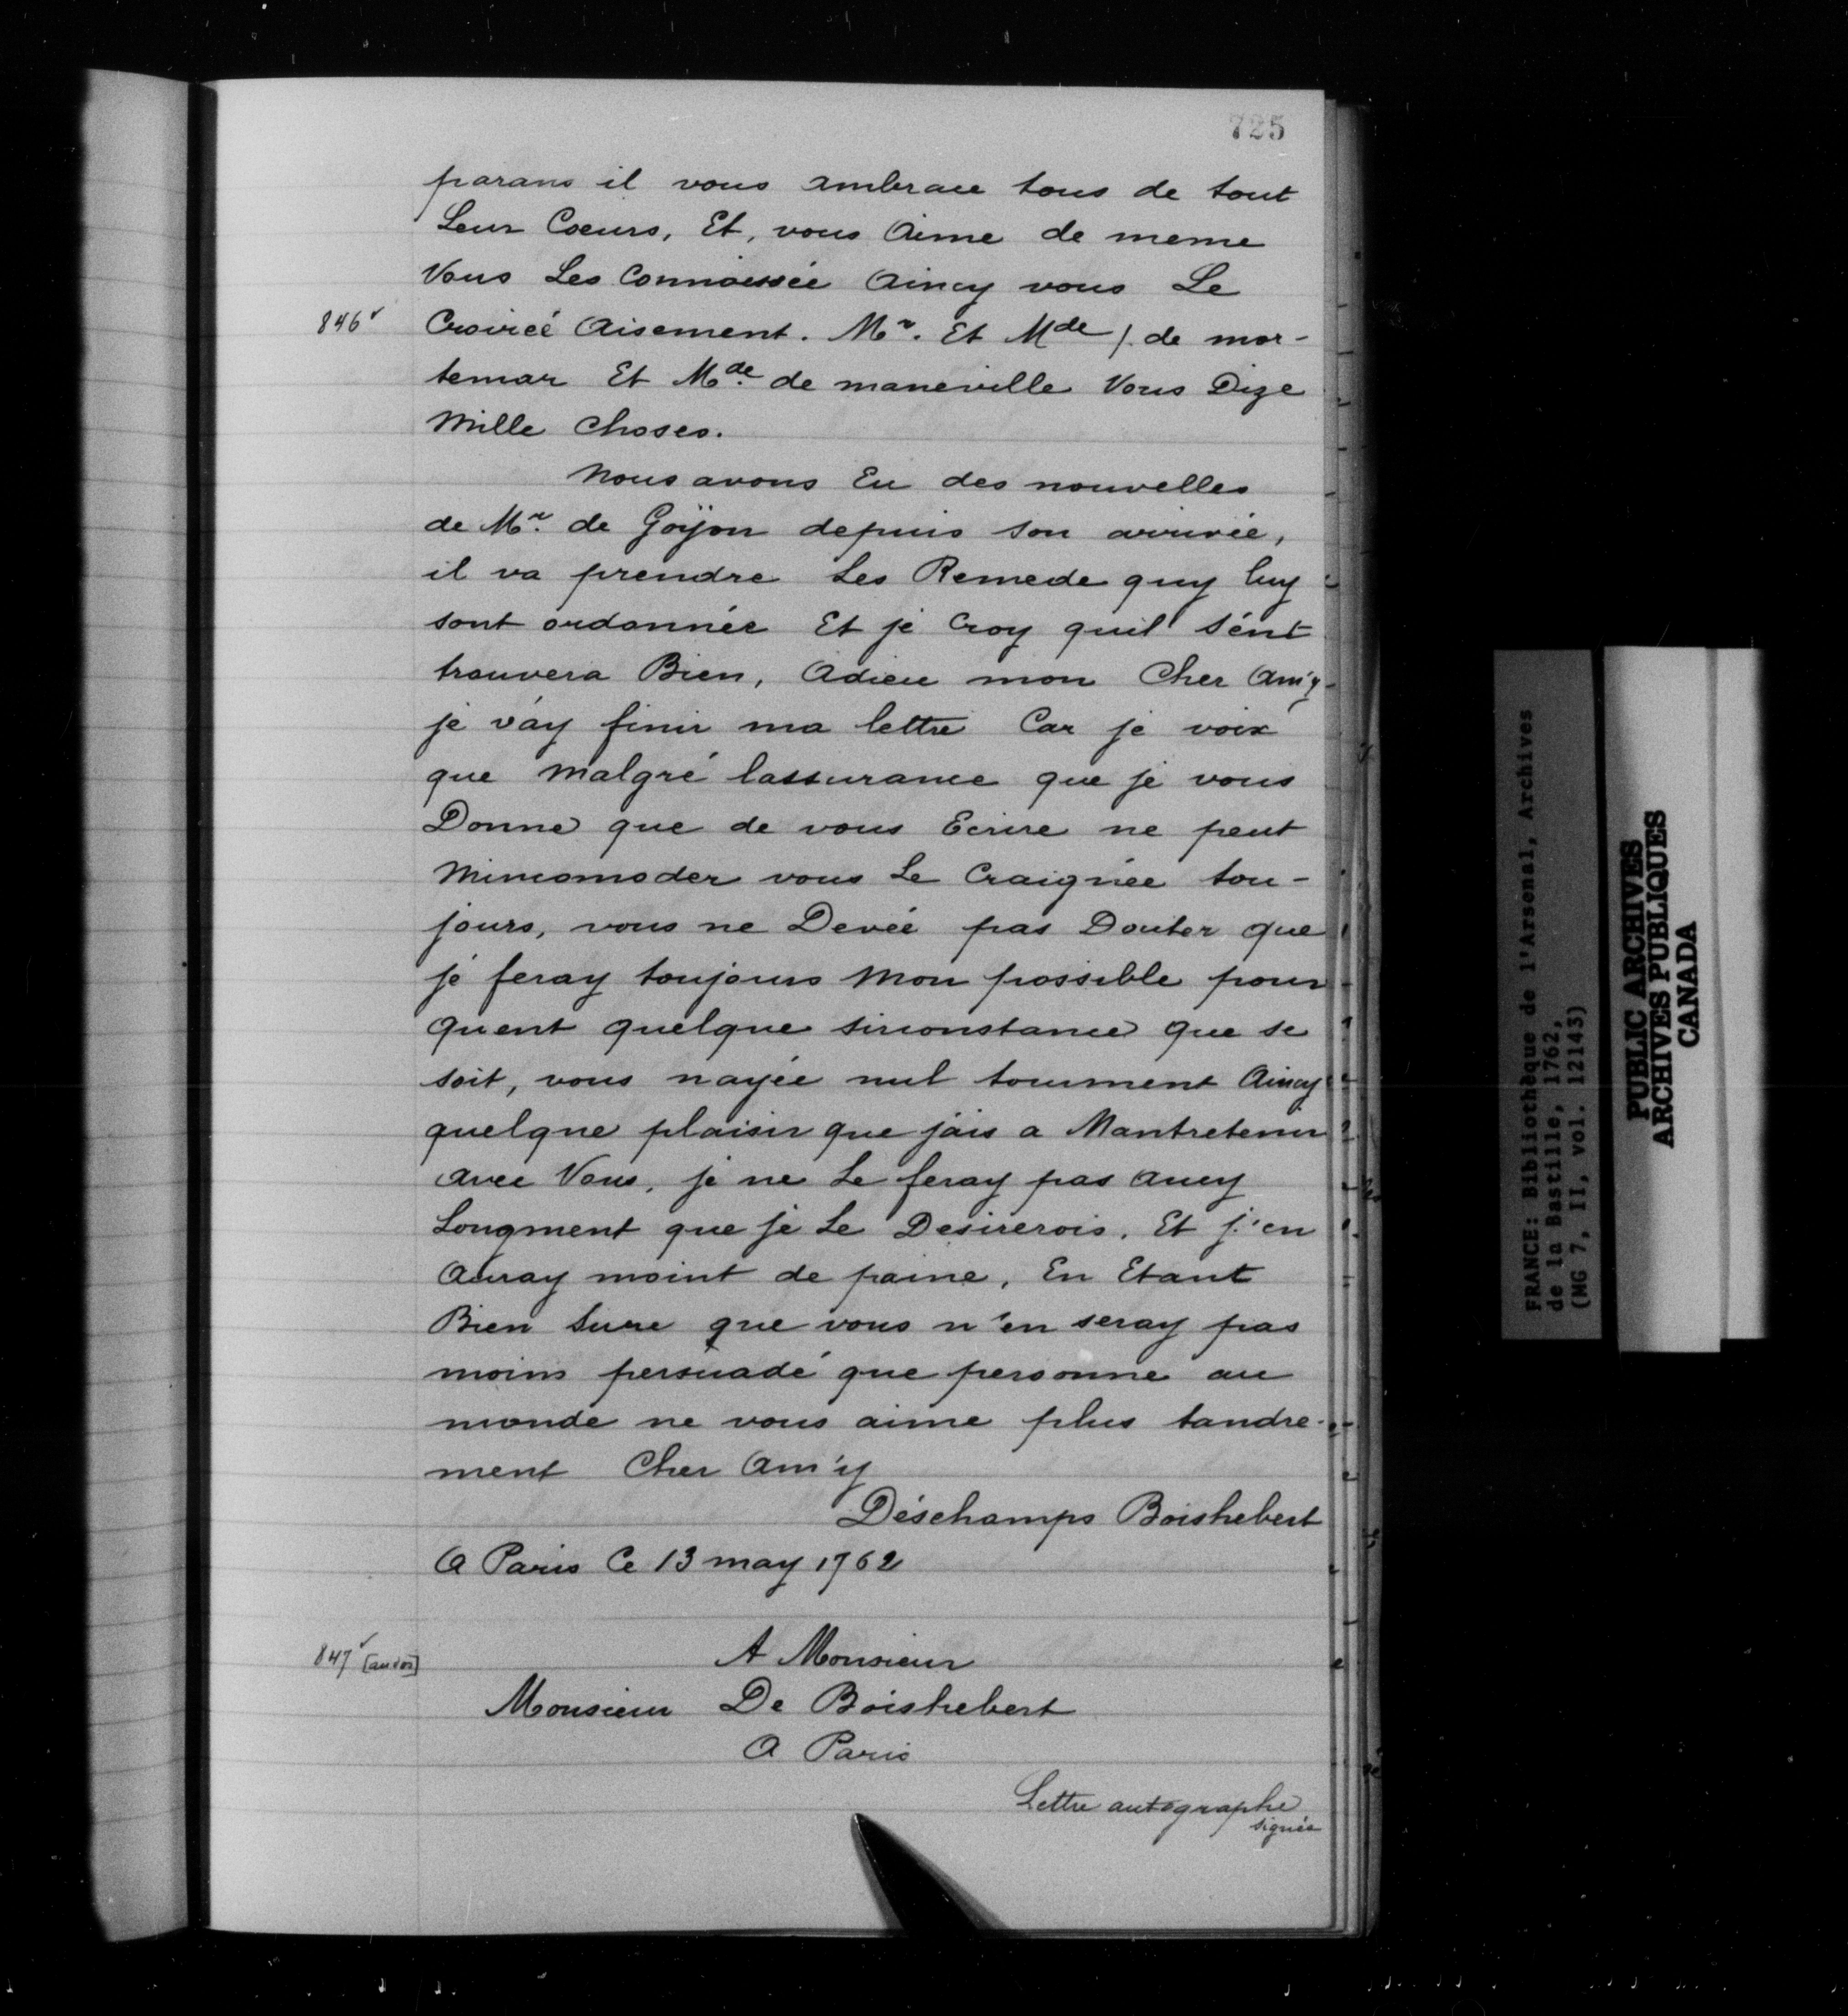 725
parans il vous ambrace tous de tout
Leur Coeurs, Et, vous Aime de meme
Vous Les Connaissée Aincy vous Le
846v Croireé Aisement. Mr. Et Mde /. de mor-
temar Et Mde. de maneville Vous Dize
Mille Choses.
Nous avons Eu des nouvelles
de Mr. de Goÿon depuis son arrivée,
il va prendre Les Remede quy luy
sont ordonnée Et je Croy quil s'ént
trouvera Bien, Adieu mon Cher Am'y-
je váy finir ma lettre Car je voix
que Malgré lassurance que je vous
Donne que de vous Ecrire ne peut
Mincomoder vous Le Craignée tou-
jours, vous ne Deveé pas Douter que
jé feray toujours Mon possible pour
quent quelque sirconstance que se
soit, vous nayée nul tourment Aincy
quelque plaisir que jais a Mantretenir
Avec Vous, je ne Le feray pas Aucy
Longment que je Le Desirerois, Et j'en
Auray moint de paine, En Etant
Bien Sure que vous n'en seray pas
moins persuadé que personne au
monde ne vous aime plus tandre-
ment Cher Am'y
Déschamps Boishebert
A Paris Ce 13 may 1762
847v [au dos] A Monsieur
Monsieur De Boishebert
A Paris
Lettre autographe
signée
FRANCE: Bibliothèque de l'Arsenal, Archives
de la Bastille, 1762,
(MG 7, II, vol. 12143)
PUBLIC ARCHIVES
ARCHIVES PUBLIQUES
CANADA